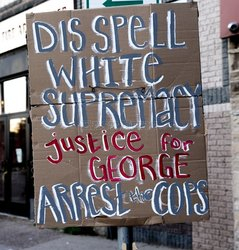 DISSPELL
WHITE
SUPREMACY
justice for
GEORGE
ARREST the COPS